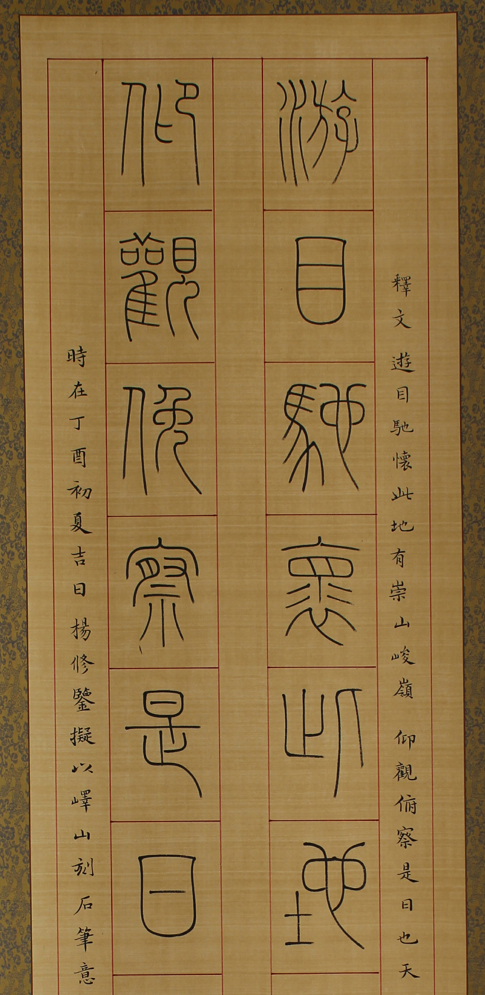 釋文 遊目馳懷此地有崇山峻嶺 仰觀俯察是日也天
游目馳褱此地
仰觀俛察是日
時在丁酉初夏吉日揚修鑒擬以嶧山刻石筆意